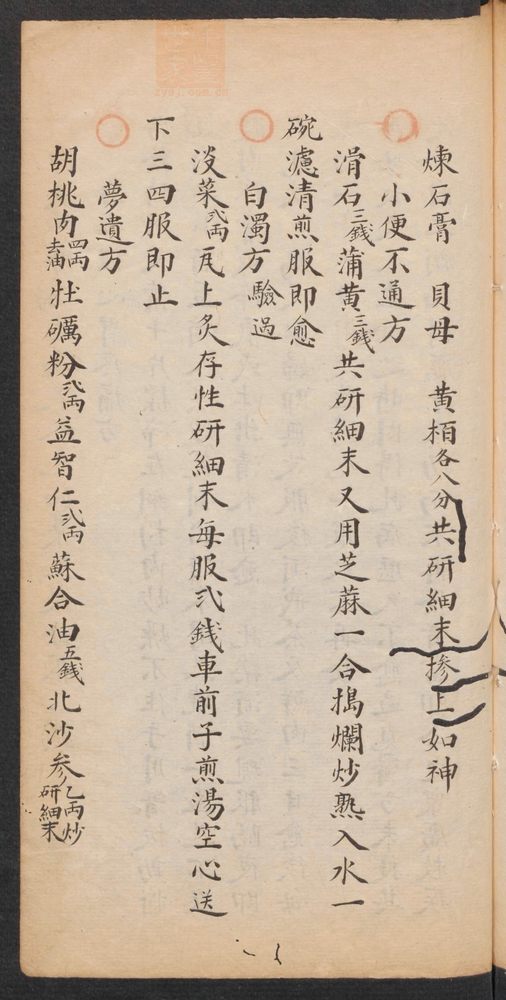 煉石膏　貝母　黄栢各八分共研細末掺上如神
小便不通方
滑石三錢蒲黄三錢共研細末又用芝蔴一合搗爛炒熟入水一
碗濾清煎服即愈
白濁方　驗過
没菜弍両瓦上炙存性研細末每服弍錢車前子煎湯空心送
下三四服即止
夢遺方
胡桃肉四両去油牡礪粉弍両益智仁弍両蘇合油五錢北沙參乙両炒研細末